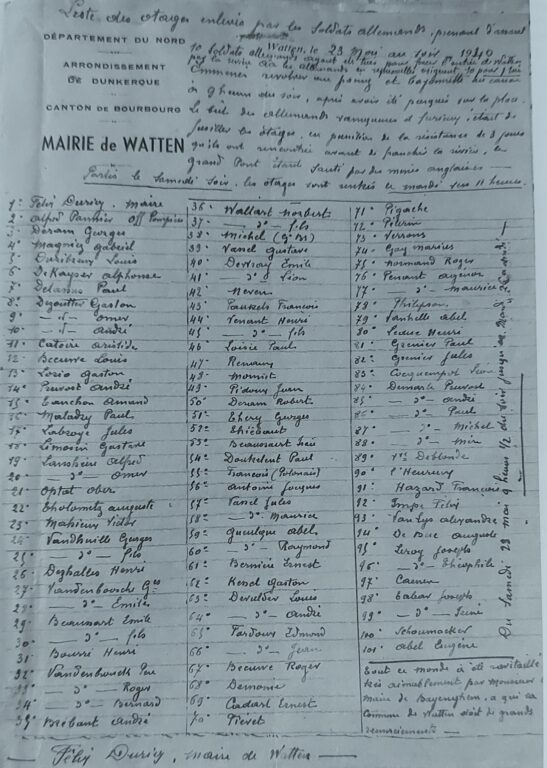 Liste des otages enlevés par les soldats allemands, prenant d'amont
DÉPARTEMENT DU NORD
ARRONDISSEMENT
DE DUNKERQUE
CANTON DE BOURBOURG
MAIRIE de WATTEN
Watten, le 23 Mai au soir 1940
10 soldats allemands ayant été tués
les allemands en représailles exigent 10 pour 1 tué
revolver au poing et bayonnette au canon
à 9 heures du soir, après avoir été parqués sur la place.
Le but des allemands vainqueurs et furieux, était de
fusiller les otages, en punition de la résistance de 3 jours
qu'ils ont rencontrée avant de franchir la rivière, le
Grand Pont étant sauté par des mines anglaises —
Partis le Samedi soir, les otages sont rentrés le mardi vers 11 heures.
1° Félix Duricq, Maire
2° Alfred Pannier Off Pompiers
3° Déram Georges
4° Magniez Gabriel
5° Louis
6° DeKeyser Alphonse
7° Delassus Paul
8° Degoutter Gaston
9° — d° — Omer
10° — d° — André
11° Catoire Aristide
12° Becuwe Louis
13° Lorio Gaston
14° Puvost André
15° Armand
16° Maladry Paul
17° Labroye Jules
18° Limosin Gustave
19° Alfred
20° — d° — Omer
21° Optat Ober
22° Auguste
23° Mahieux Victor
24° Vandheuille Georges
25° — d° — fils
26° Deghalles Henri
27° Vandenbossche Ges
28° — d° — Emile
29° Beaussart Emile
30° — d° — fils
31° Bourré Henri
32° Vandenbossche
33° — d° — Roger
34° — d° — Bernard
35° Brébant André
36° Wallart Norbert
37° — d° — fils
38° Michel (G.M)
39° Vasel Gustave
40° Emile
41° — d° Léon
42° Neveu
43° Pauxels François
44° Venant Henri
45° — d° — fils
46° Loisie Paul
47° Renaux
48° Momist
49° Pidoux Jean
50° Déram Robert
51° Ehery Georges
52° Thiébaut
53° Beaussaert
54° Paul
55° François (Polonais)
56° Antoine Jacques
57° Vasel Jules
58° — d° — Maurice
59° Gueulque Abel
60° — d° — Raymond
61° Bernière Ernest
62° Kesel Gaston
63° Devulder Louis
64° — d° — André
65° Tardour Edmond
66° — d° — Jean
67° Becuwe Roger
68° Demonie
69° Cadart Ernest
70° Fievet
71° Pigache
72° Pelerin
73° Verrons
74° Gay Marius
75° Normand Roger
76° Penant
77° — d° — Maurice
78° Philipson
79° Vanhille Abel
80° Leduc Henri
81° Grenier Paul
82° Grenier Jules
83° Cocquempot
84° Demarle
85° — d° — André
86° — d° — Paul
87° — d° — Michel
88° — d° —
89° Deblonde
90° L'Heureux
91° Hazard François
92° Félix
93° Van Lys Alexandre
94° De Bue Auguste
95° Leroy Joseph
96° — d° — Théophile
97° Caenen
98° Joseph
99° — d° — René
100° Schoumacker
101° Abel Eugène
Du Samedi 23 mai 9 heures 1/2 du soir jusqu'au
Tout ce monde a été ravitaillé
très aimablement par Monsieur le
Maire de Bayenghem, à qui la
Commune de Watten doit de grands
remerciements —
— Félix Duricq, Maire de Watten —